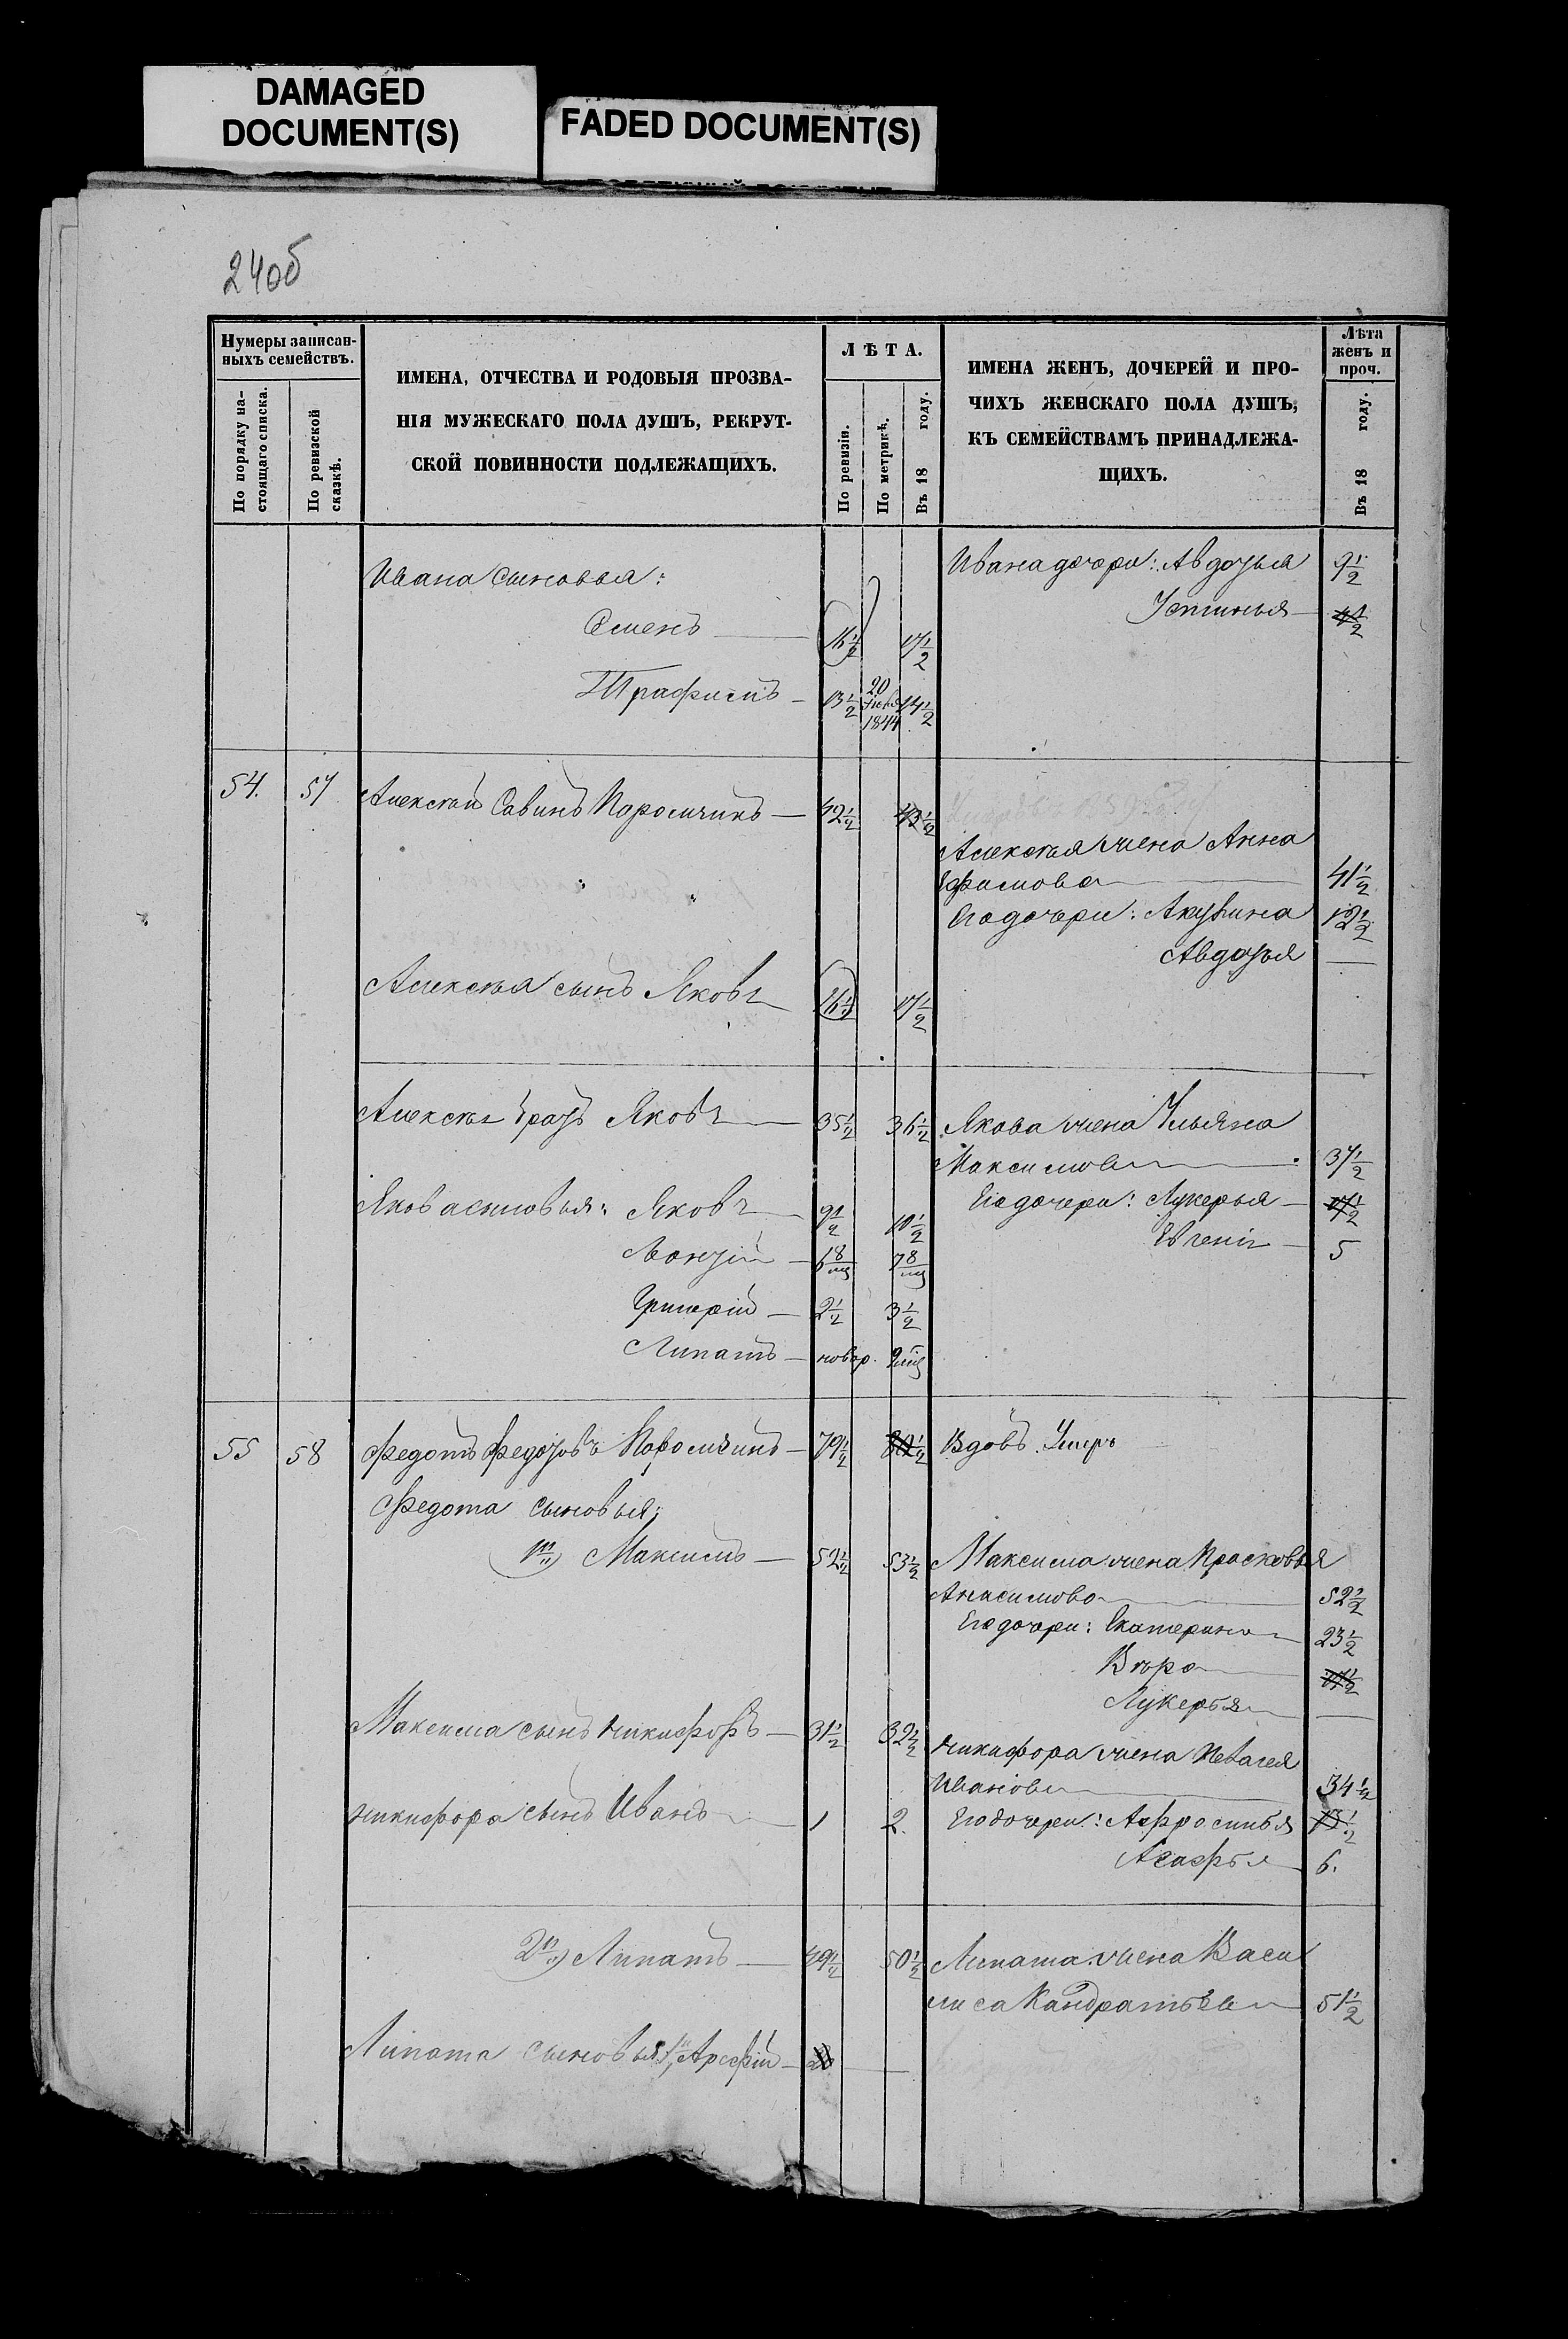 DAMAGED
DOCUMENT(S)
FADED DOCUMENT(S)
240б
Нумеры записан-
ныхъ семействъ.
По порядку на-
стоящаго списка.
По ревизской
сказкѣ.
ИМЕНА, ОТЧЕСТВА И РОДОВЫЯ ПРОЗВА-
НІЯ МУЖЕСКАГО ПОЛА ДУШЪ, РЕКРУТ-
СКОЙ ПОВИННОСТИ ПОДЛЕЖАЩИХЪ.
ЛѢТА.
По ревизіи.
По метрикѣ.
Въ 18 году.
ИМЕНА ЖЕНЪ, ДОЧЕРЕЙ И ПРО-
ЧИХЪ ЖЕНСКАГО ПОЛА ДУШЪ,
КЪ СЕМЕЙСТВАМЪ ПРИНАДЛЕЖА-
ЩИХЪ.
Лѣта
женъ и
проч.
Въ 18 году.
Ивана дочери: Авдотья 9 1/2
Ивана сыновья:
Устинья
Семенъ 16 1/2 17 1/2
Трафимъ 13 1/2 20 1844 14 1/2
54. 57 Алексѣй Савинъ 42 1/2 43 1/2
Алексѣя жена Анна
Ефимова 41 1/2
Его дочери: Акулина 12 1/2
Авдотья
Алексѣя сынъ Яковъ 16 1/2 17 1/2
Алексѣя братъ Яковъ 35 1/2 36 1/2 Якова жена Ульяна
Максимова 37 1/2
Якова сыновья: Яковъ 9 1/2 10 1/2 Его дочери: Лукерья
Евгенія 5
Леонтій 6 8/мц 7 8/мц
Григорій 2 1/2 3 1/2
Липатъ новор. 9 мц
55 58 Федотъ Федотовъ 79 1/2 Вдовъ. Умеръ
Федота сыновья;
1й) Максимъ 52 1/2 53 1/2 Максима жена Прасковья
Анисимова 52 1/2
Его дочери: Екатерина 23 1/2
Вѣра
Лукерья
Максима сынъ Никифоръ 31 1/2 32 1/2
Никифора жена Пелагея
Иванова 34 1/2
Никифора сынъ Иванъ 1 2. Его дочери: Афросинья
Агафья 6.
2й) Липатъ 49 1/2 50 1/2 Липата жена Васи
лиса Кандратьева 51 1/2
Липата сыновья: 1й,